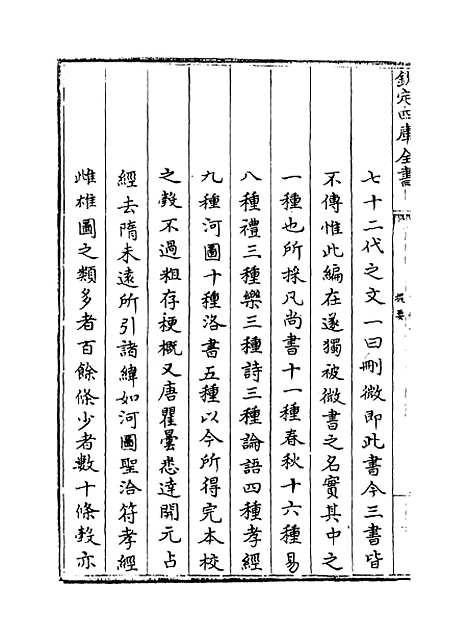 欽定四庫全書
提要
七十二代之文一曰刪微即此書今三書皆
不傳惟此編在遂獨被微書之名實其中之
一種也所採凡尚書十一種春秋十六種易
八種禮三種樂三種詩三種論語四種孝經
九種河圖十種洛書五種以今所得完本校
之殺不過粗存梗概又唐瞿曇悉達開元占
經去隋未遠所引諸緯如河圖聖洽符孝經
雌雄圖之類多者百餘條少者數十條殺亦